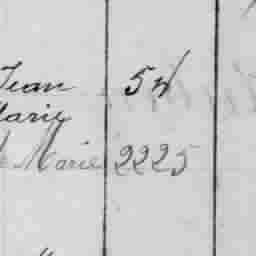 Jean 54
Marie
Marie 2225